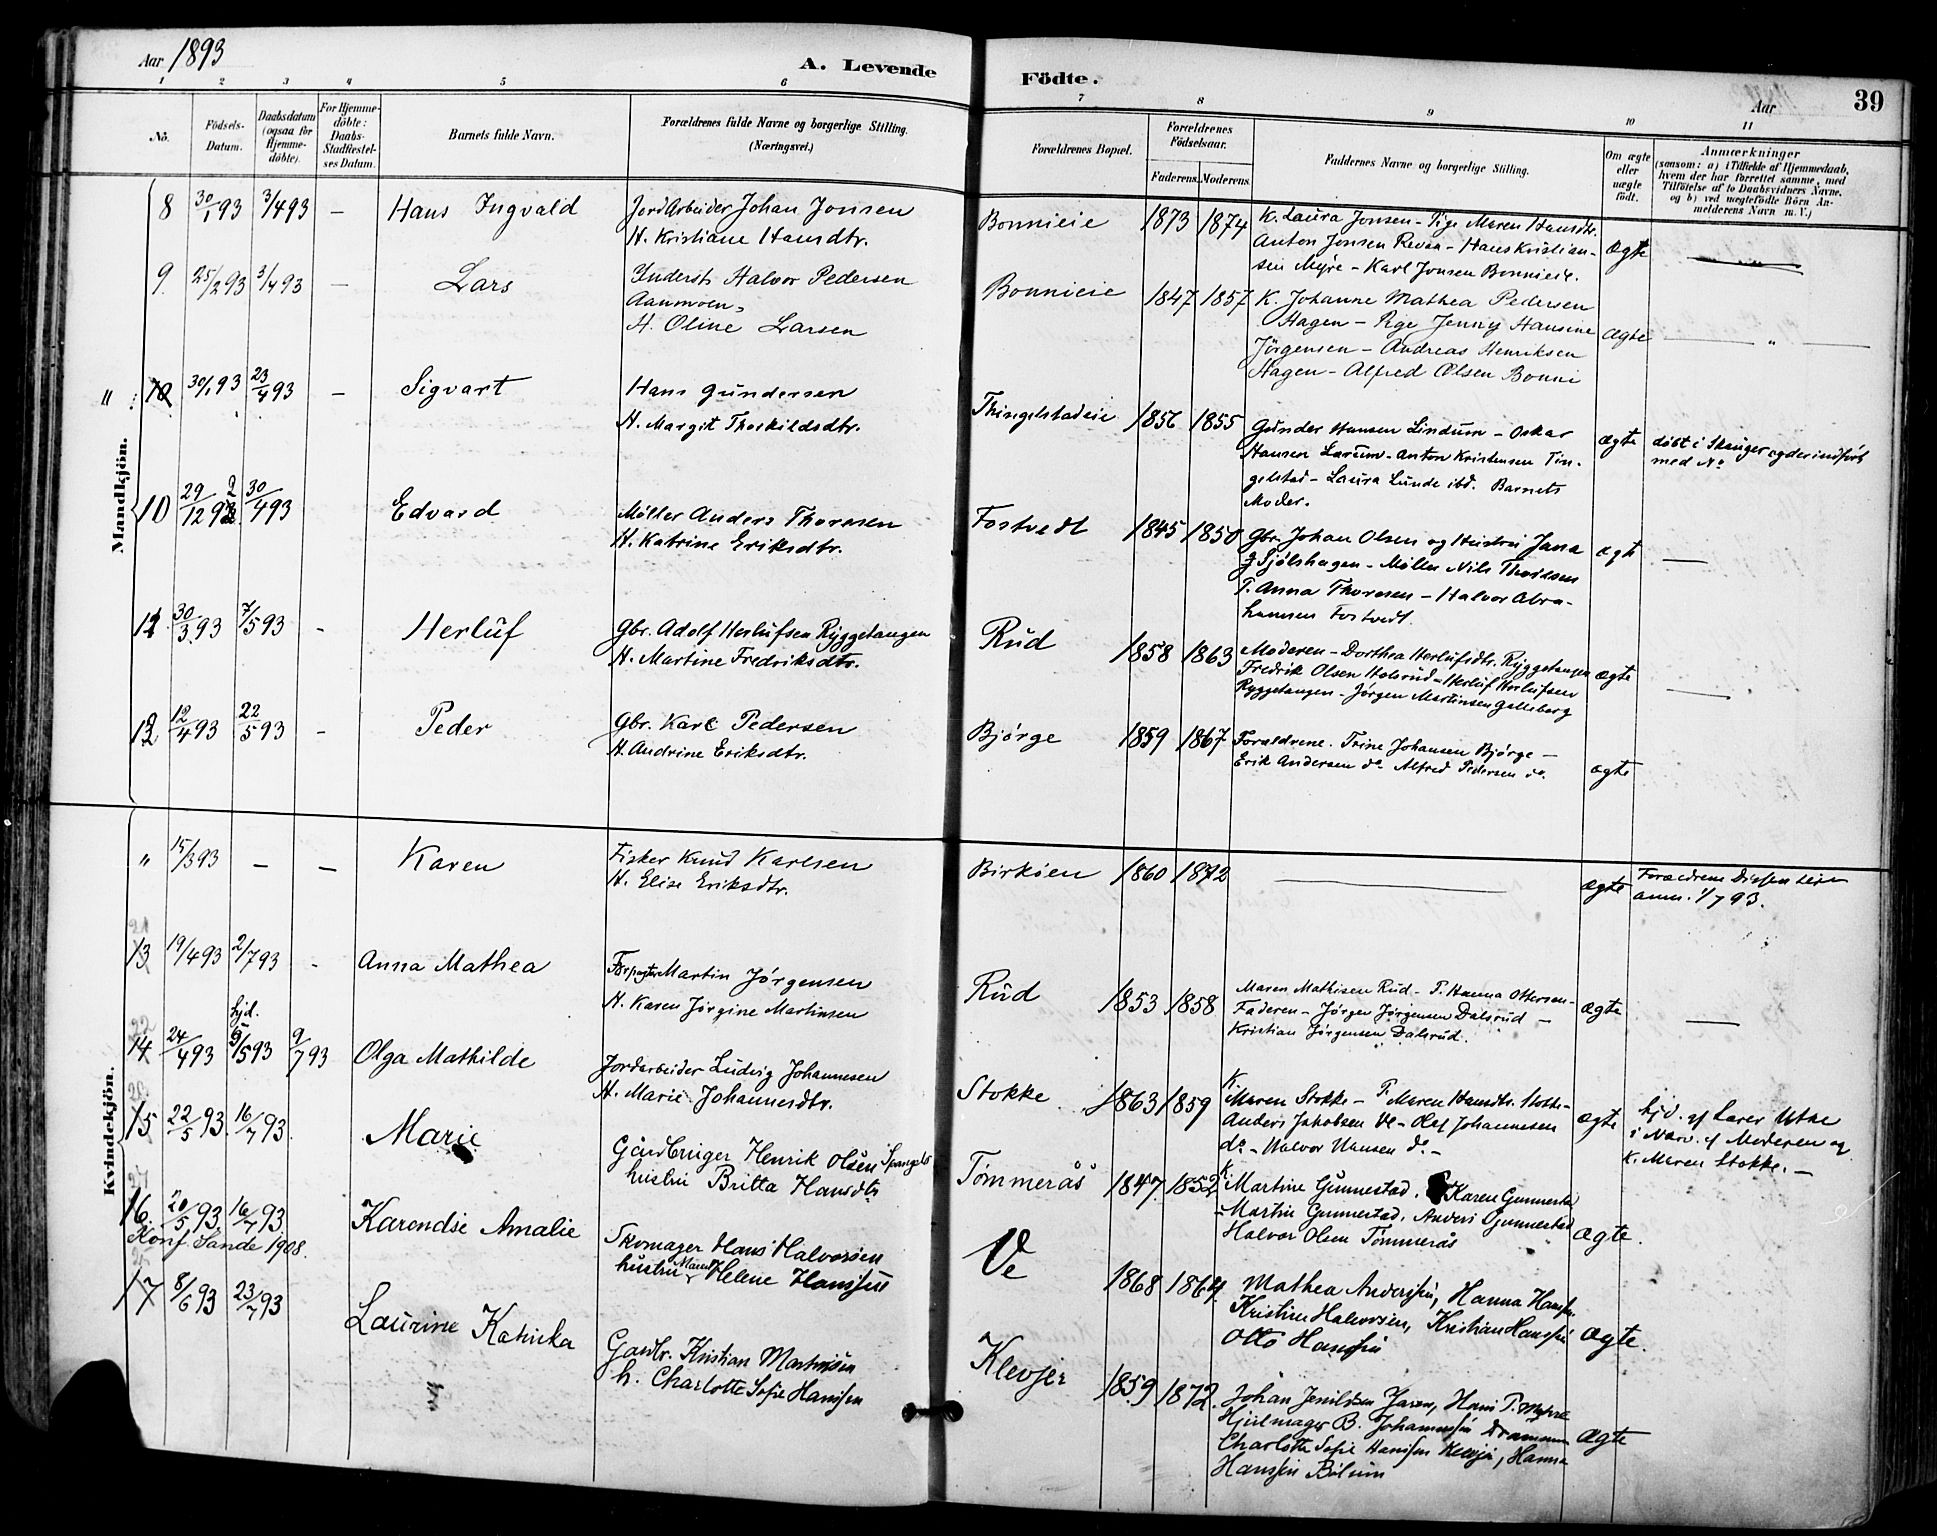 Aar 1893
A. Levende
Födte.
Aar
39
1 2 3 4 5 6 7 8 9 10 11
No.
Födsels-
Datum.
Daabsdatum
(ogsaa for
Hjemme-
döbte).
For Hjemme-
döbte:
Daabs-
Stadfæstel-
ses Datum.
Barnets fulde Navn.
Forældrenes fulde Navne og borgerlige Stilling.
(Næringsvei.)
Forældrenes Bopæl.
Forældrenes
Födselsaar.
Faderens. Moderens.
Faddernes Navne og borgerlige Stilling.
Om ægte
eller
uægte
födt.
Anmærkninger
(saasom: a) i Tilfælde af Hjemmedaab,
hvem der har forrettet samme, med
Tilföielse af to Daabsvidners Navne.
og b) ved uægtefödte Börn An-
melderens Navn m. V.)
Mandkjön.
8 30/1 93 3/4 93 — Hans Ingvald
Jordarbeider Johan Jonsen
H. Kristiane Hansdtr.
Bonnieie 1873 1874
K. Laura Jonsen – Pige Maren Hansdtr.
Anton Jonsen Revaa – Hans Kristian-
sen Myre – Karl Jonsen Bonnieie.
ægte
9. 25/2 93 3/4 93 — Lars
Inderst Halvor Pedersen
Aanmoen,
H. Oline Larsen
Bonnieie 1847 1857
K. Johanne Mathea Pedersen
Hagen – Pige Jenny Hansine
Jörgensen – Andreas Henriksen
Hagen – Alfred Olsen Bonni
ægte — " —
" 10 30/1 93 23/4 93 — Sigvart
Hans Gundersen
H. Margit Thorkildsdtr.
Thingelstadeie 1856 1855
Gunder Hansen Lindum – Oskar
Hansen Larum – Anton Kristensen Tin-
gelstad – Laura Lunde ibd. Barnets
Moder.
ægte
döbt i Skauger og der indfört
med No
10 29/12 92 30/4 93 Edvard
Møller Anders Thoresen
H. Katrine Eriksdtr.
Fostvedt 1845 1850
Gbr. Johan Olsen og Hustru Jana
Sjølshagen – Møller Nils Thoresen
P. Anna Thoresen – Halvor Abra-
hamsen Fostvedt.
ægte —
11 30/3 93 7/5 93 - Herluf
Gbr. Adolf Herlufsen Ryggetangen
H. Martine Fredriksdtr.
Rud 1858 1863
Moderen – Dorthea Herlufsdtr. Ryggetangen
Fredrik Olsen Holsrud – Herluf Herlufsen
Ryggetangen – Jørgen Martinsen Galleberg
ægte —
12 12/4 93 22/5 93 - Peder
Gbr. Karl Pedersen
H. Andrine Eriksdtr.
Bjørge 1859 1867
Forældrene. Trine Johansen Bjørge –
Erik Andersen do Alfred Pedersen do.
ægte
Kvindekjön.
" 15/3 93 — — Karen
Fisker Knud Karlsen
H. Elise Eriksdtr.
Birkøen 1860 1872
ægte
Forældrene Dissentere
anm. 1/7 93.
13 19/4 93 2/7 93 - Anna Mathea
Forpagter Martin Jørgensen
H. Karen Jørgine Martinsen
Rud 1853 1858
Maren Mathisen Rud – P. Hanna Ottersen –
Faderen – Jørgen Jørgensen Dalsrud –
Kristian Jørgensen Dalsrud.
ægte —
14 24/4 93 hjd. 5/5 93 9/7 93 Olga Mathilde
Jordarbeider Ludvig Johannesen
H. Marie Johannesdtr.
Stokke 1863 1859
K. Maren Stokke – P. Maren Hansdtr. Stokke
Anders Jakobsen Ve – Olef Johannesen
do – Halvor Hansen do –
ægte
hjd. af Lærer Utne
i Nærv. af Moderen og
K. Maren Stokke. –
15 22/5 93. 16/7 93. Marie
Gaardbruger Henrik Olsen
hustru Britta Hansdtr
Tømmerås 1847 1852
K. Martine Gunnestad. Karen Gunnestad
Martin Gunnestad, Anders Gunnestad
Halvor Olsen Tømmerås
ægte.
16. 20/5 93. 16/7 93 Karendse Amalie
Konf. Sande 1908.
Skomager Hans Halvorsen
hustru Maren Helene Hanssen
Ve 1868 1864.
Mathea Anderssen, Hanna Hanssen
Kristine Halvorsen, Kristian Hanssen
Otto Hanssen
ægte.
17 8/6 93 23/7 93 Laurine Katinka
Gaardbr. Kristian Martinsen
h. Charlotte Sofie Hanssen
Klevjer 1859 1872.
Johan Hans P.
Hjulmager B. Johannessen Drammen
Charlotte Sofie Hanssen Klevjer, Hanna
Hanssen Bölum
ægte